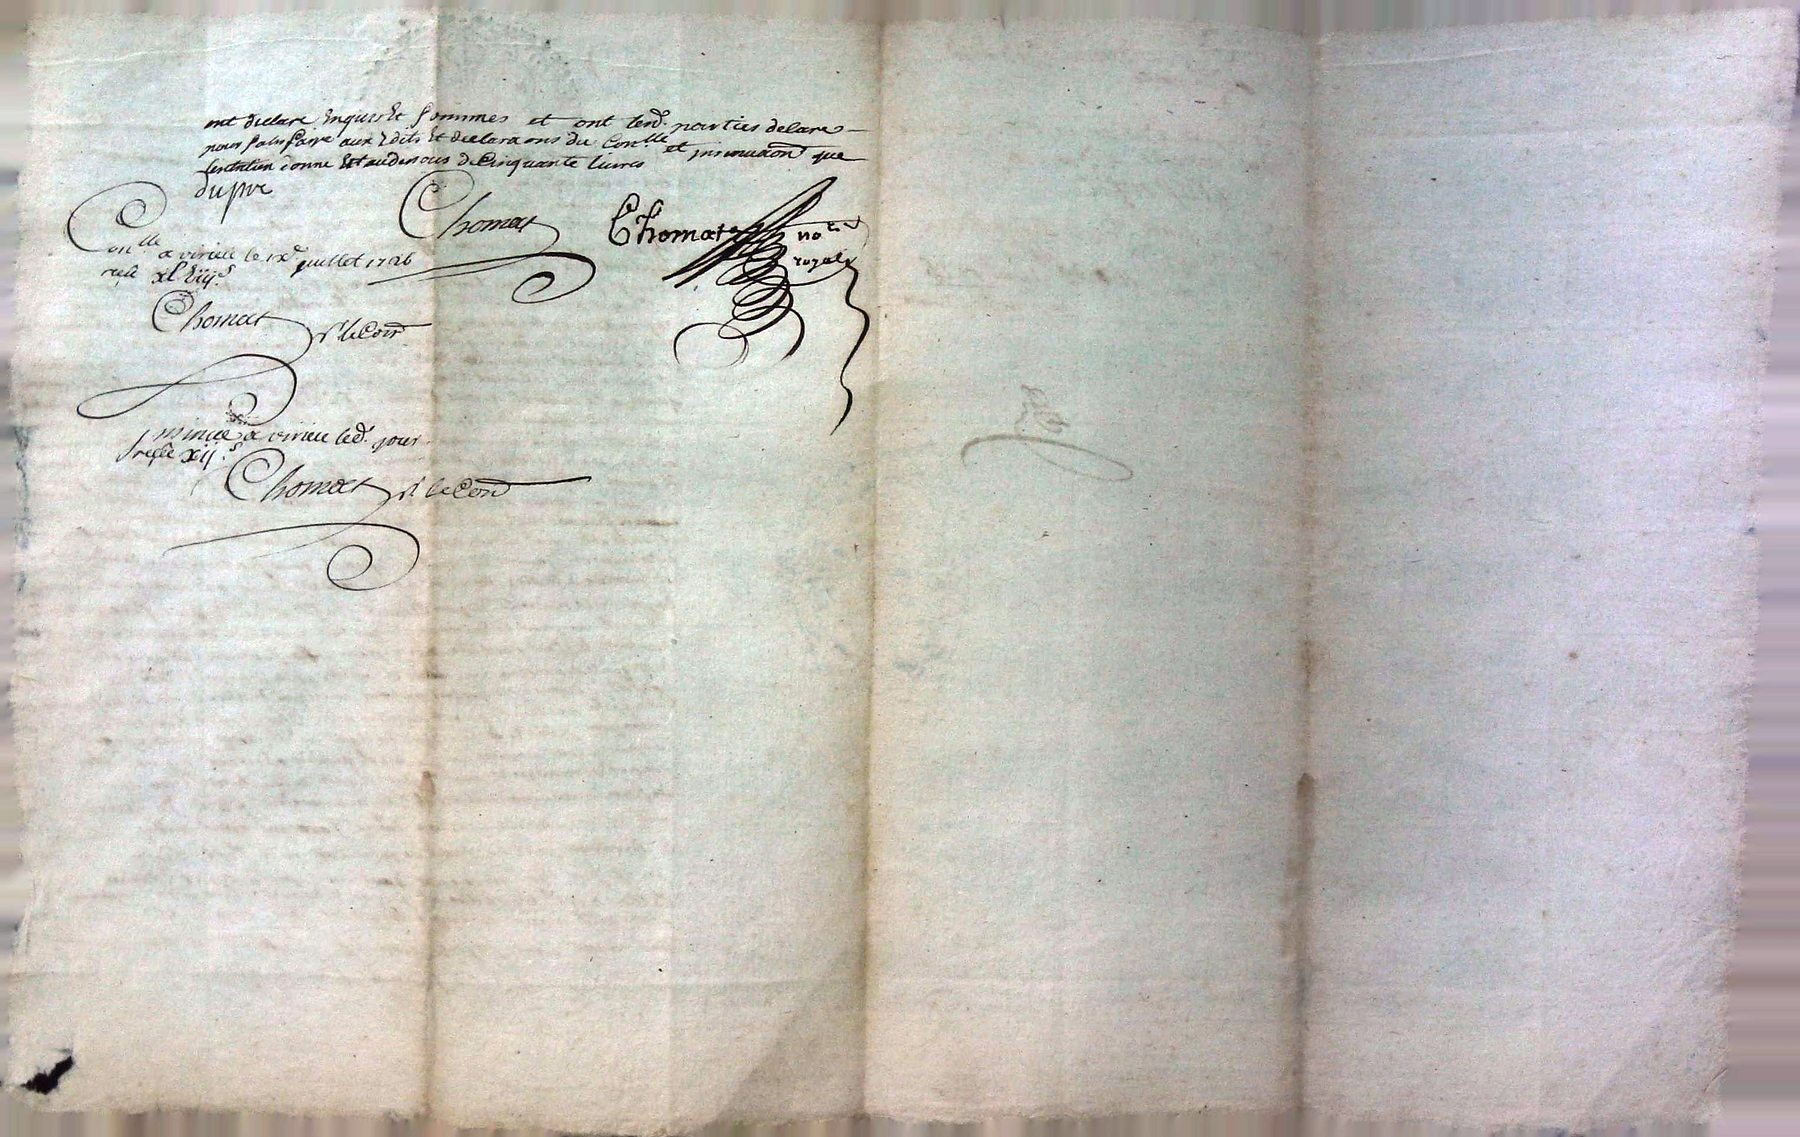 ont declare Enquis Et sommes et ont lesd. parties declare
pour satisfaire aux Edits Et declara ons du Con.lle et insinuaon que
est au dessous de Cinquante livres
dupre
Chomat
Chomat no.re
royal
Con.lle a virieu le ix.e juillet 1726
reçu xl
Chomat p.r le Con
insinué a virieu led. jour
reçu xij s
Chomat p.r le Con